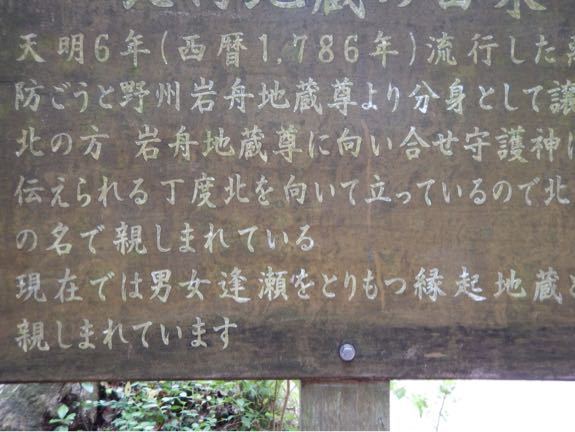 地蔵の由来
天明6年(西暦1,786年)流行した悪
防ごうと野州岩舟地蔵尊より分身として譲
北の方 岩舟地蔵尊に向い合せ守護神に
伝えられる丁度北を向いて立っているので北
の名で親しまれている
現在では男女逢瀬をとりもつ縁起地蔵と
親しまれています